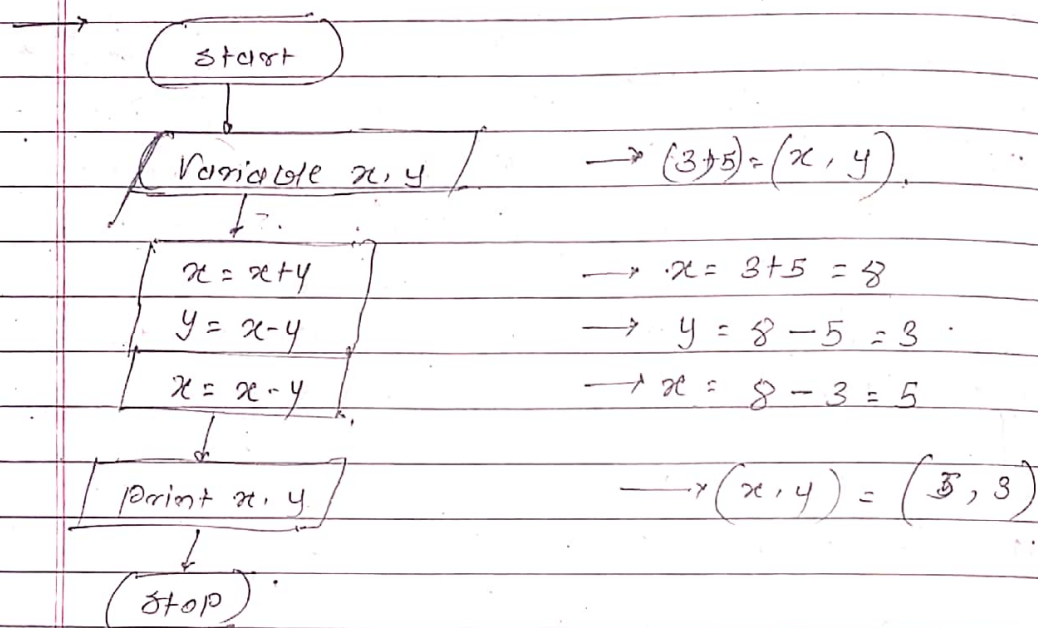 Start
Variable x, y → (3,5) = (x, y)
x = x+y → x = 3+5 = 8
y = x-y → y = 8 - 5 = 3
x = x-y → x = 8 - 3 = 5
print x, y → (x, y) = (5, 3)
Stop